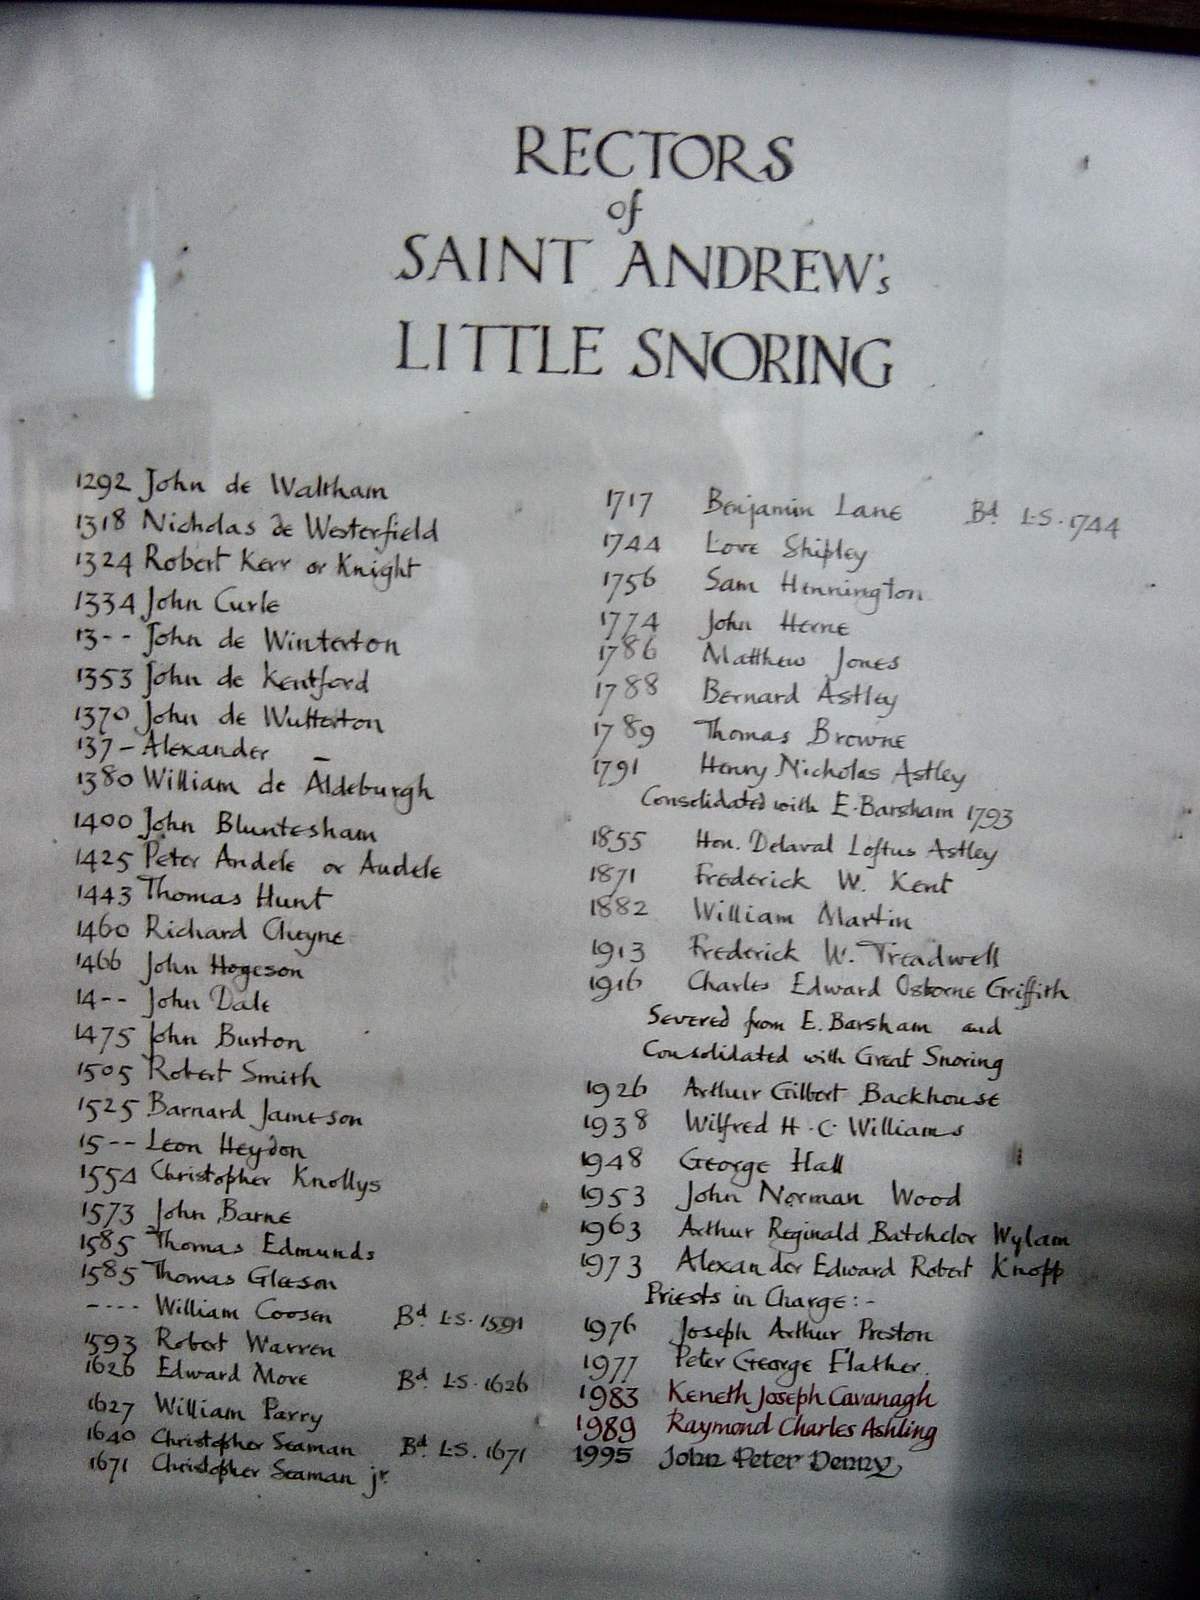 RECTORS
of
SAINT ANDREW's
LITTLE SNORING
1292 John de Waltham
1318 Nicholas de Westerfield
1324 Robert Kerr or Knight
1334 John Curle
13-- John de Winterton
1353 John de Kentford
1370 John de Wutterton
137- Alexander -
1380 William de Aldeburgh
1400 John Bluntesham
1425 Peter Andele or Audele
1443 Thomas Hunt
1460 Richard Cheyne
1466 John Hogeson
14-- John Dale
1475 John Burton
1505 Robert Smith
1525 Barnard Jameson
15-- Leon Heydon
1554 Christopher Knollys
1573 John Barne
1585 Thomas Edmunds
1585 Thomas Gleeson
---- William Coosen Bd. L.S. 1591
1593 Robert Warren
1626 Edward More Bd. L.S. 1626
1627 William Parry
1640 Christopher Seaman Bd. L.S. 1671
1671 Christopher Seaman jr.
1717 Benjamin Lane Bd. L.S. 1744
1744 Love Shipley
1756 Sam Hennington
1774 John Herne
1786 Matthew Jones
1788 Bernard Astley
1789 Thomas Browne
1791 Henry Nicholas Astley
Consolidated with E. Barsham 1793
1855 Hon. Delaval Loftus Astley
1871 Frederick W. Kent
1882 William Martin
1913 Frederick W. Treadwell
1916 Charles Edward Osborne Griffith
Severed from E. Barsham and
Consolidated with Great Snoring
1926 Arthur Gilbert Backhouse
1938 Wilfred H. C. Williams
1948 George Hall
1953 John Norman Wood
1963 Arthur Reginald Batchelor Wylam
1973 Alexander Edward Robert Knopp
Priests in Charge:-
1976 Joseph Arthur Preston
1977 Peter George Flather.
1983 Keneth Joseph Cavanagh
1989 Raymond Charles Ashling
1995 John Peter Denny